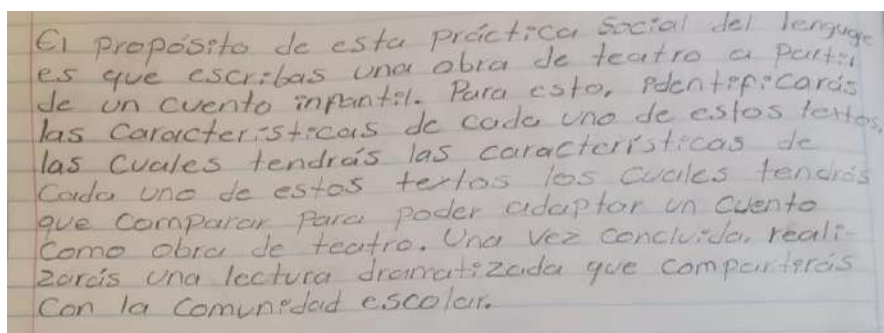 El propósito de esta práctica social del lenguaje
es que escribas una obra de teatro a partir
de un cuento infantil. Para esto, identificarás
las características de cada uno de estos textos,
las cuales tendrás las características de
Cada uno de estos textos los cuales tendrás
que comparar para poder adaptar un cuento
como obra de teatro. Una vez concluida, reali-
zarás una lectura dramatizada que compartirás
con la comunidad escolar.